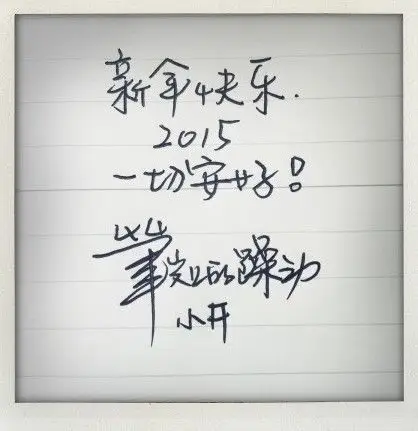 新年快乐.
2015
一切安好！
的躁动
小开